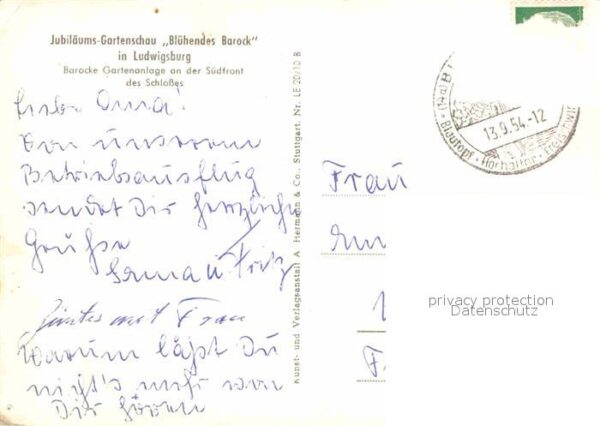 Jubiläums-Gartenschau „Blühendes Barock"
in Ludwigsburg
Barocke Gartenanlage an der Südfront
des Schloßes
Liebe Oma!
Von unserem
Betriebsausflug
sendet Dir herzliche
Grüße
Erna u. Fritz
mit Frau
Warum läßt Du
nicht's mehr von
Dir hören
Kunst- und Verlagsanstalt A Hermann & Co., Stuttgart. Nr. LE 20/10 B
(14a) B
13.9.54.-12
Blautopf · Hochaltar
Frau
privacy protection
Datenschutz